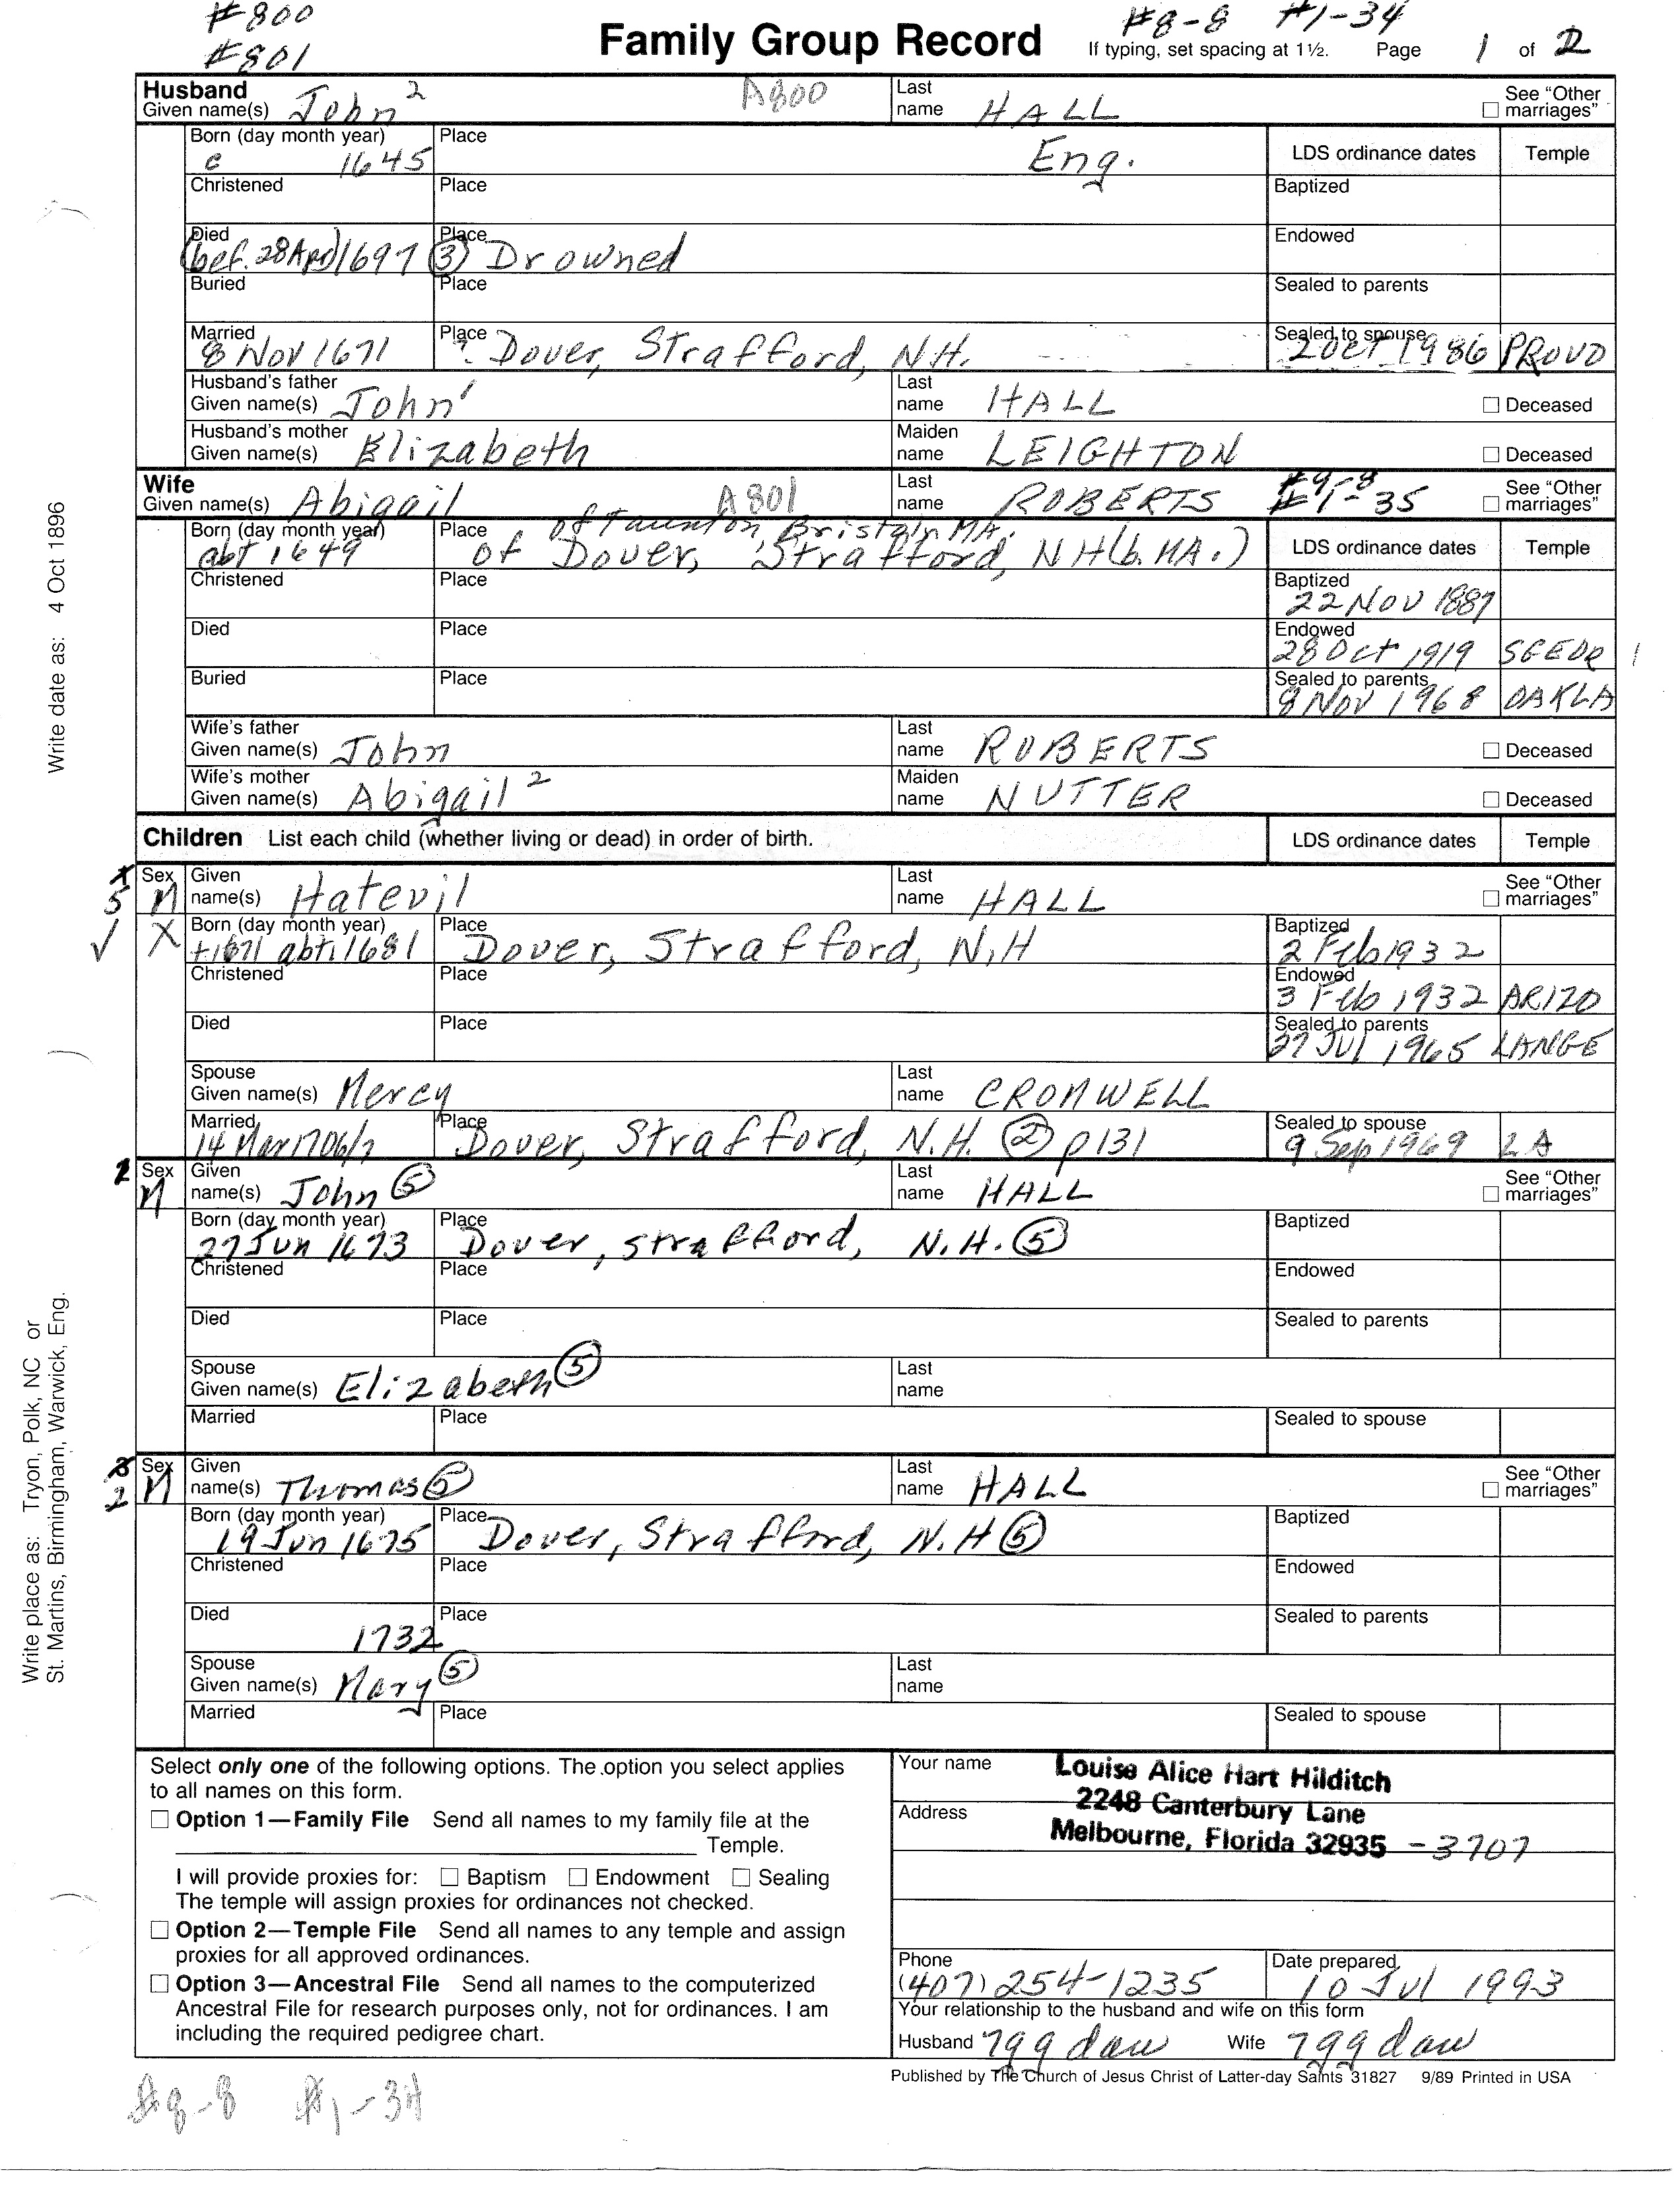 #800
#801
Family Group Record
#8-8 #1-34
If typing, set spacing at 1½. Page 1 of 2
Husband
Given name(s) John 2 A800 Last name HALL See "Other marriages"
Born (day month year) c 1645 Place Eng. LDS ordinance dates Temple
Christened Place Baptized
Died (bef. 28 Apr) 1697 Place (3) Drowned Endowed
Buried Place Sealed to parents
Married 8 Nov 1671 Place ? Dover, Strafford, N.H. Sealed to spouse 2 Oct 1986 PROVO
Husband's father Given name(s) John 1 Last name HALL Deceased
Husband's mother Given name(s) Elizabeth Maiden name LEIGHTON Deceased
Wife
Given name(s) Abigail A801 Last name ROBERTS #9-8 #1-35 See "Other marriages"
of Taunton, Bristol, MA.
Born (day month year) abt 1649 Place of Dover, Strafford, NH (b. MA.) LDS ordinance dates Temple
Christened Place Baptized 22 Nov 1887
Died Place Endowed 28 Oct 1919 SGEOR
Buried Place Sealed to parents 8 Nov 1968 OAKLA
Wife's father Given name(s) John Last name ROBERTS Deceased
Wife's mother Given name(s) Abigail 2 Maiden name NUTTER Deceased
Children List each child (whether living or dead) in order of birth. LDS ordinance dates Temple
5 Sex M Given name(s) Hatevil Last name HALL See "Other marriages"
✓ X Born (day month year) +1671 abt. 1681 Place Dover, Strafford, N.H Baptized 2 Feb 1932
Christened Place Endowed 3 Feb 1932 ARIZO
Died Place Sealed to parents 27 Jul 1965 LANGE
Spouse Given name(s) Mercy Last name CROMWELL
Married 14 Mar 1706/7 Place Dover, Strafford, N.H. (2) p131 Sealed to spouse 9 Sep 1969 LA
Sex M Given name(s) John (5) Last name HALL See "Other marriages"
Born (day month year) 27 Jun 1673 Place Dover, Strafford, N.H. (5) Baptized
Christened Place Endowed
Died Place Sealed to parents
Spouse Given name(s) Elizabeth (5) Last name
Married Place Sealed to spouse
3 2 Sex M Given name(s) Thomas (5) Last name HALL See "Other marriages"
Born (day month year) 19 Jun 1675 Place Dover, Strafford, N.H (5) Baptized
Christened Place Endowed
Died 1732 Place Sealed to parents
Spouse Given name(s) Mary (5) Last name
Married Place Sealed to spouse
Select only one of the following options. The option you select applies
to all names on this form.
Option 1—Family File Send all names to my family file at the
Temple.
I will provide proxies for: Baptism Endowment Sealing
The temple will assign proxies for ordinances not checked.
Option 2—Temple File Send all names to any temple and assign
proxies for all approved ordinances.
Option 3—Ancestral File Send all names to the computerized
Ancestral File for research purposes only, not for ordinances. I am
including the required pedigree chart.
Your name Louise Alice Hart Hilditch
Address 2248 Canterbury Lane
Melbourne, Florida 32935 -3707
Phone (407) 254-1235 Date prepared 10 Jul 1993
Your relationship to the husband and wife on this form
Husband 7gg dau Wife 7gg dau
Published by The Church of Jesus Christ of Latter-day Saints 31827 9/89 Printed in USA
#8-8 #1-34
Write date as: 4 Oct 1896
Write place as: Tryon, Polk, NC or
St. Martins, Birmingham, Warwick, Eng.